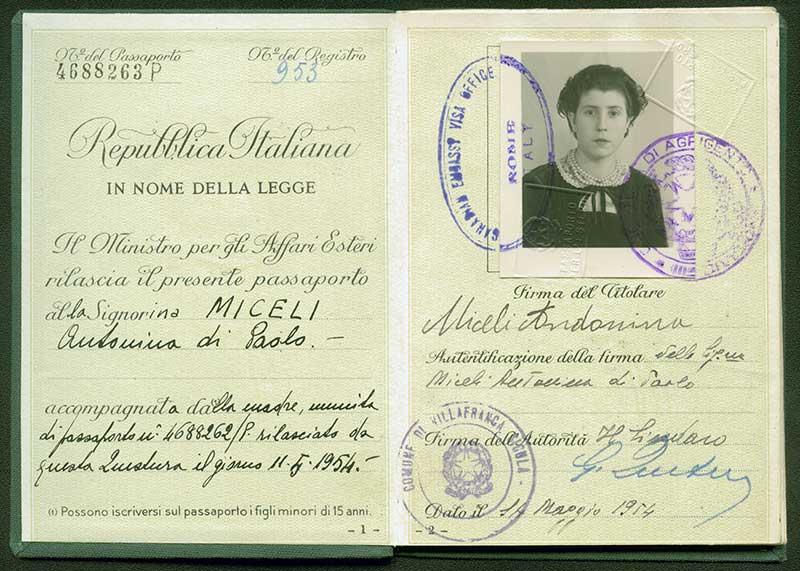 Nº del Passaporto
4688263 P
Nº del Registro
953
Repubblica Italiana
IN NOME DELLA LEGGE
Il Ministro per gli Affari Esteri
rilascia il presente passaporto
alla Signorina MICELI
Antonina di Paolo.-
accompagnata dalla madre, munita
di passaporto nº 4688262/P. rilasciato da
questa Questura il giorno 11.5.1954.-
(1) Possono iscriversi sul passaporto i figli minori di 15 anni.
- 1 -
CANADIAN EMBASSY VISA OFFICE
ROME
ALY
DI AGRIGENT
Firma del Titolare
Miceli Andonina
Autentificazione della firma della Sig.na
Miceli Antonina di Paolo
COMUNE DI VILLAFRANCA SICULA
Firma dell'Autorità Il Sindaco
Dato il 14 Maggio 1954
- 2 -